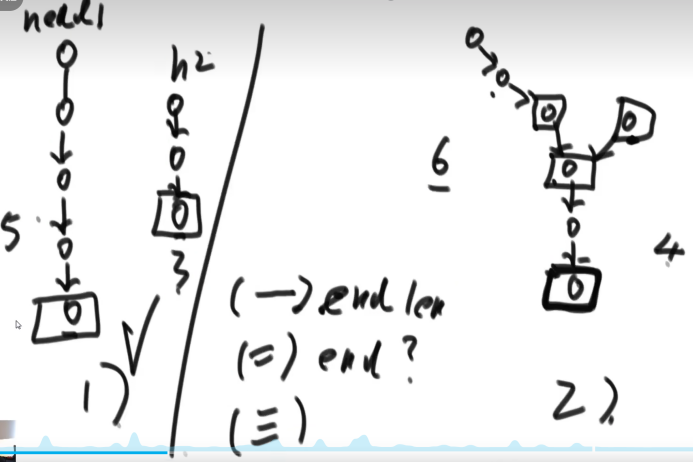 head1
h2
5
3
1)
6
4
(一) end len
(二) end?
(三)
2)